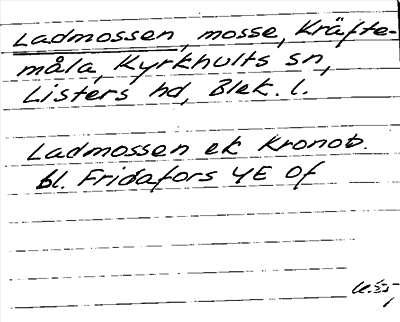 Ladmossen, mosse, Kräfte-
måla, Kyrkhults sn,
Listers hd, Blek. l.
Ladmossen ek Kronob.
bl. Fridafors 4E 0f